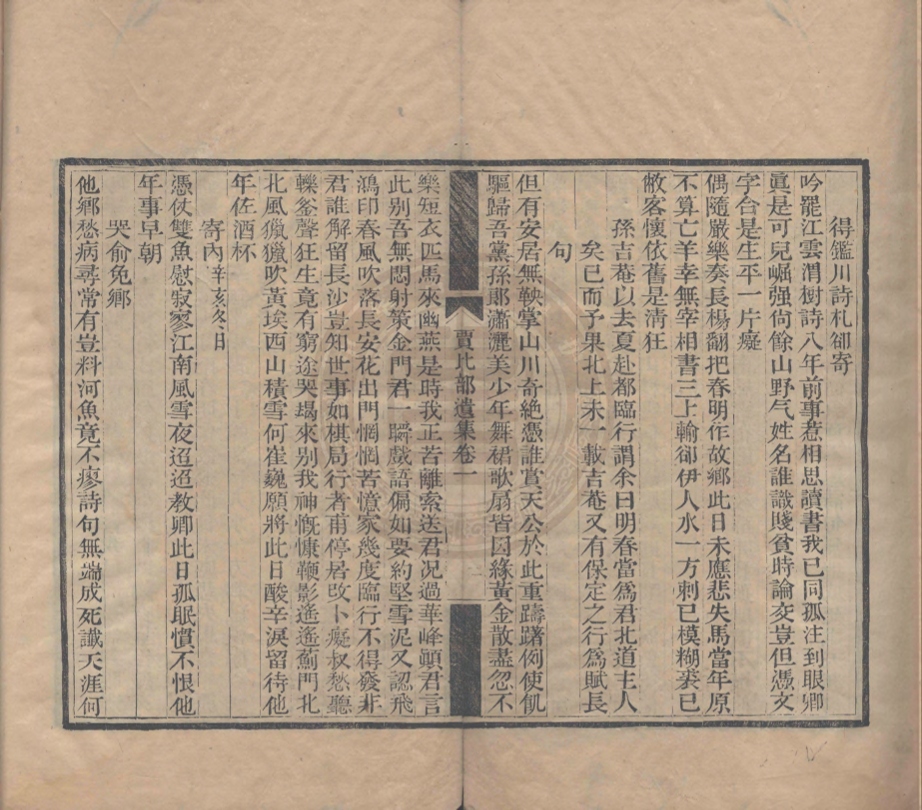 得鑑川詩札卻寄
吟罷江雲渭樹詩八年前事惹相思讀書我已同孤注到眼卿
眞是可兒崛强尙餘山野气姓名誰識賤貧時論交豈但憑文
字合是生平一片癡
偶隨嚴樂奏長楊翻把春明作故鄉此日未應悲失馬當年原
不算亡羊幸無宰相書三上輸卻伊人水一方刺已模糊裘已
敝客懷依舊是清狂
孫吉菴以去夏赴都臨行謂余曰明春當爲君北道主人
矣已而予果北上未一載吉菴又有保定之行爲賦長
句
但有安居無鞅掌山川奇絶憑誰賞天公於此重躊躇例使飢
驅歸吾黨孫郎瀟灑美少年舞裙歌扇皆因緣黃金散盡忽不
賈比部遺集卷一
樂短衣匹馬來幽燕是時我正苦離索送君况過華峰顚君言
此別吾無悶射策金門君一瞬戲語偏如要約堅雪泥又認飛
鴻印春風吹落長安花出門惘惘苦憶家幾度臨行不得發非
君誰解留長沙豈知世事如棋局行者甫停居攺卜癡叔愁聽
轢釜聲狂生竟有窮途哭朅來別我神慨慷鞭影遙遙薊門北
北風獵獵吹黃埃西山積雪何崔巍願將此日酸辛淚留待他
年佐酒杯
寄內辛亥冬日
憑仗雙魚慰寂寥江南風雪夜迢迢教卿此日孤眠慣不恨他
年事早朝
哭俞免鄉
他鄉愁病尋常有豈料河魚竟不瘳詩句無端成死讖天涯何